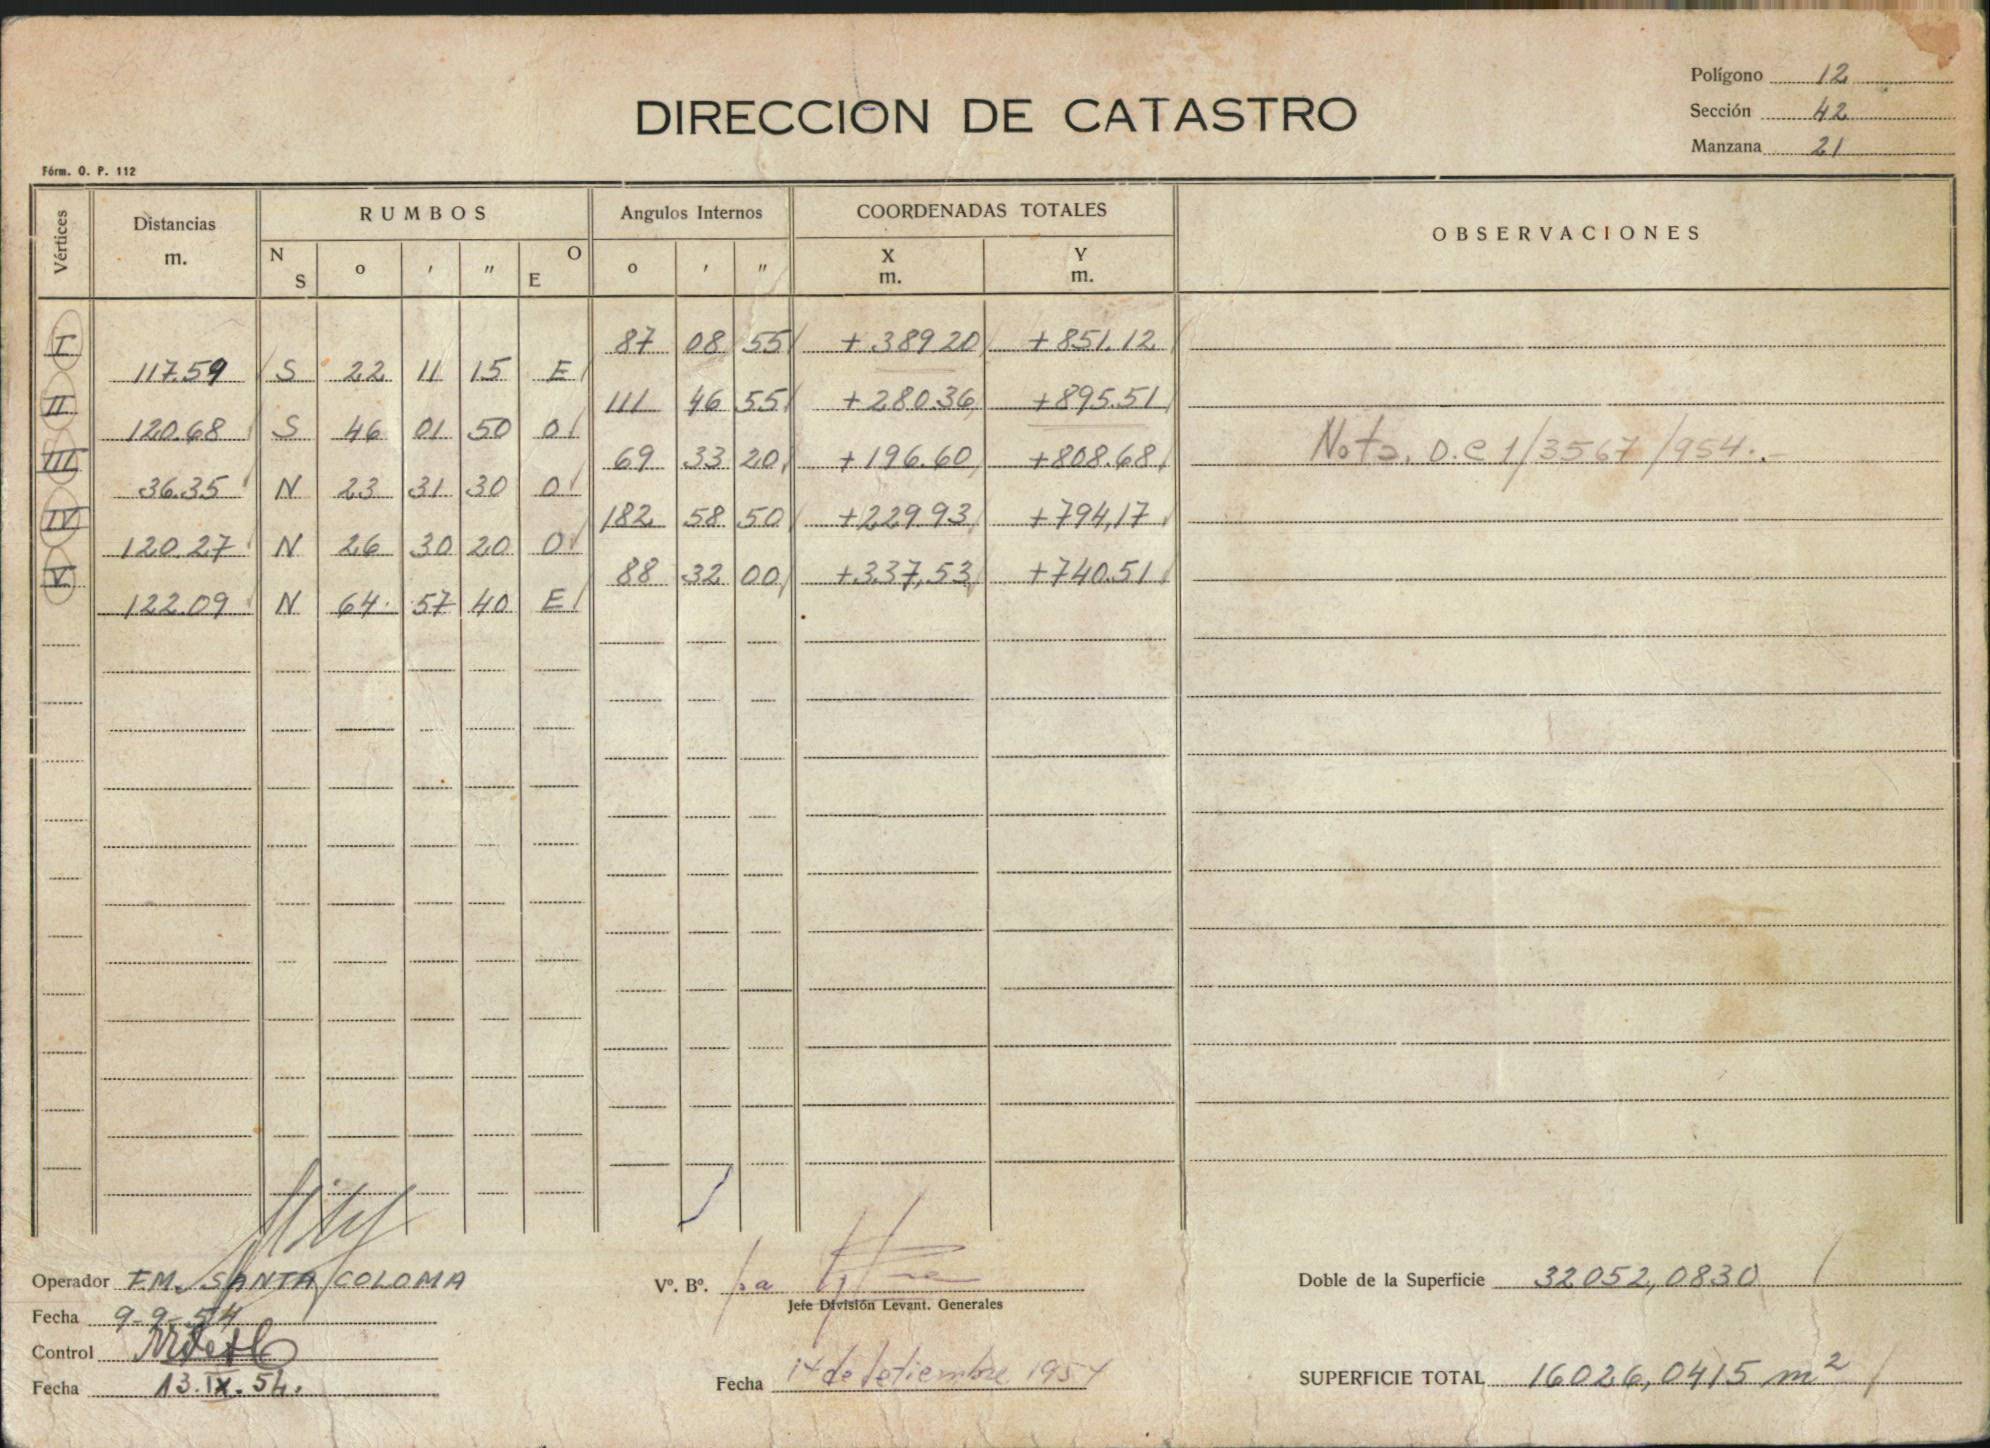 Polígono 12
DIRECCION DE CATASTRO
Sección 42
Manzana 21
Fórm. O. P. 112
Vértices Distancias m. RUMBOS N S o ' " O E Angulos Internos o ' " COORDENADAS TOTALES X m. Y m. OBSERVACIONES
I 87 08 55 +389 20 +851.12
117.59 S 22 11 15 E
II 111 46 55 +280.36 +895.51
120.68 S 46 01 50 O
III 69 33 20 +196.60 +808.68
Nota. D.C 1/3567/954.-
36.35 N 23 31 30 O
IV 182 58 50 +229.93 +794,17
120.27 N 26 30 20 O
V 88 32 00 +337,53 +740.51
122.09 N 64 57 40 E
Operador F.M. SANTA COLOMA
Fecha 9-9-54
Control
Fecha 13.IX.54.
Vº. Bº. pa
Jefe División Levant. Generales
Fecha 14 de Setiembre 1954
Doble de la Superficie 32052,0830
SUPERFICIE TOTAL 16026,0415 m²